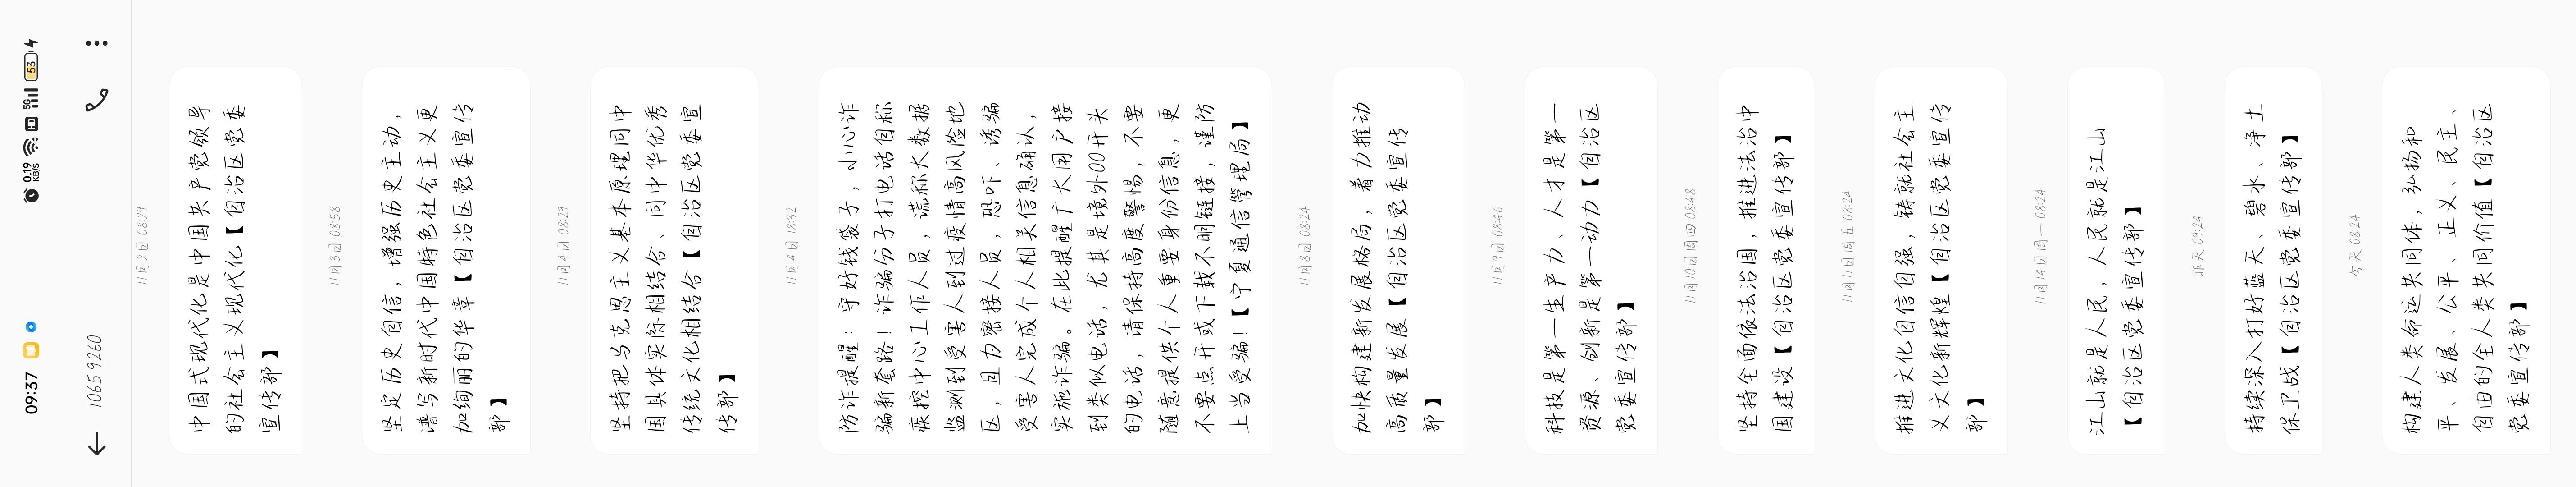 09:37
0.19 KB/s
HD
5G
53
1065 9260
11月2日 08:29
中国式现代化是中国共产党领导
的社会主义现代化【自治区党委
宣传部】
11月3日 08:58
坚定历史自信，增强历史主动，
谱写新时代中国特色社会主义更
加绚丽的华章【自治区党委宣传
部】
11月4日 08:29
坚持把马克思主义基本原理同中
国具体实际相结合、同中华优秀
传统文化相结合【自治区党委宣
传部】
11月4日 18:32
防诈提醒：守好钱袋子，小心诈
骗新套路！诈骗分子打电话自称
疾控中心工作人员，谎称大数据
监测到受害人到过疫情高风险地
区，且为密接人员，恐吓、诱骗
受害人完成个人相关信息确认，
实施诈骗。在此提醒广大用户接
到类似电话，尤其是境外00开头
的电话，请保持高度警惕，不要
随意提供个人重要身份信息，更
不要点开或下载不明链接，谨防
上当受骗！【宁夏通信管理局】
11月8日 08:24
加快构建新发展格局，着力推动
高质量发展【自治区党委宣传
部】
11月9日 08:46
科技是第一生产力、人才是第一
资源、创新是第一动力【自治区
党委宣传部】
11月10日周四 08:48
坚持全面依法治国，推进法治中
国建设【自治区党委宣传部】
11月11日周五 08:24
推进文化自信自强，铸就社会主
义文化新辉煌【自治区党委宣传
部】
11月14日周一 08:24
江山就是人民，人民就是江山
【自治区党委宣传部】
昨天 09:24
持续深入打好蓝天、碧水、净土
保卫战【自治区党委宣传部】
今天 08:24
构建人类命运共同体，弘扬和
平、发展、公平、正义、民主、
自由的全人类共同价值【自治区
党委宣传部】